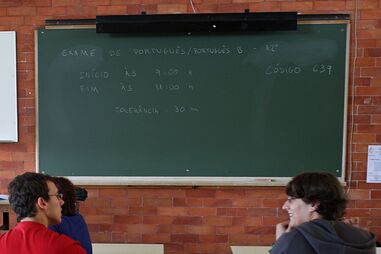 EXAME DE PORTUGUÊS/PORTUGUÊS B - 12º
INÍCIO ÀS 9:00 H
CÓDIGO 639
FIM ÀS 11:00 H
TOLERÂNCIA - 30 m